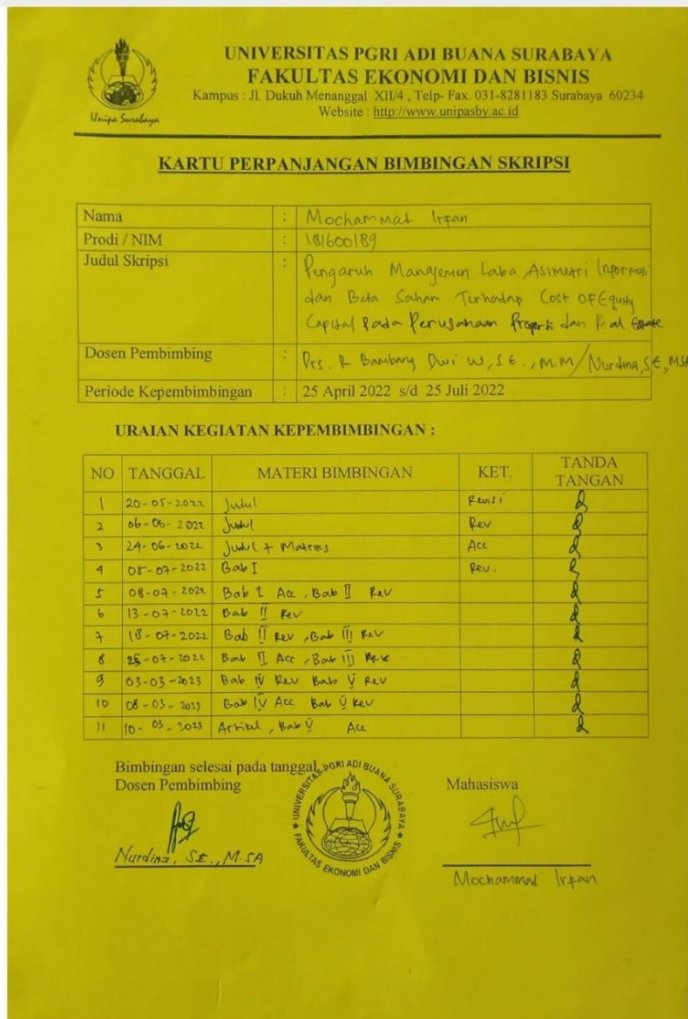 UNIVERSITAS PGRI ADI BUANA SURABAYA
FAKULTAS EKONOMI DAN BISNIS
Kampus : Jl. Dukuh Menanggal XII/4 , Telp- Fax. 031-8281183 Surabaya 60234
Website : http://www.unipasby.ac.id
Unipa Surabaya
KARTU PERPANJANGAN BIMBINGAN SKRIPSI
Nama : Mochammad Irfan
Prodi / NIM : 181600189
Judul Skripsi : Pengaruh Manajemen Laba, Asimetri Informasi
dan Beta Saham Terhadap Cost OF Equity
Capital Pada Perusahaan Properti dan Real Estate
Dosen Pembimbing : Drs. R Bambang Dwi W, S.E., M.M/Nurdina, S.E, MSA
Periode Kepembimbingan : 25 April 2022 s/d 25 Juli 2022
URAIAN KEGIATAN KEPEMBIMBINGAN :
NO TANGGAL MATERI BIMBINGAN KET. TANDA TANGAN
1 20-05-2022 Judul Revisi
2 06-06-2022 Judul Rev
3 24-06-2022 Judul + Matriks Acc
4 05-07-2022 Bab I Rev.
5 08-07-2022 Bab I Acc, Bab II Rev
6 13-07-2022 Bab II Rev
7 18-07-2022 Bab II Rev, Bab III Rev
8 25-07-2022 Bab II Acc, Bab III
9 03-03-2023 Bab IV Rev Bab V Rev
10 08-03-2023 Bab IV Acc Bab V Rev
11 10-03-2023 Artikel, Bab V Acc
Bimbingan selesai pada tanggal
Dosen Pembimbing Mahasiswa
UNIVERSITAS PGRI ADI BUANA SURABAYA
FAKULTAS EKONOMI DAN BISNIS
Nurdina, SE., M.SA
Mochammad Irfan